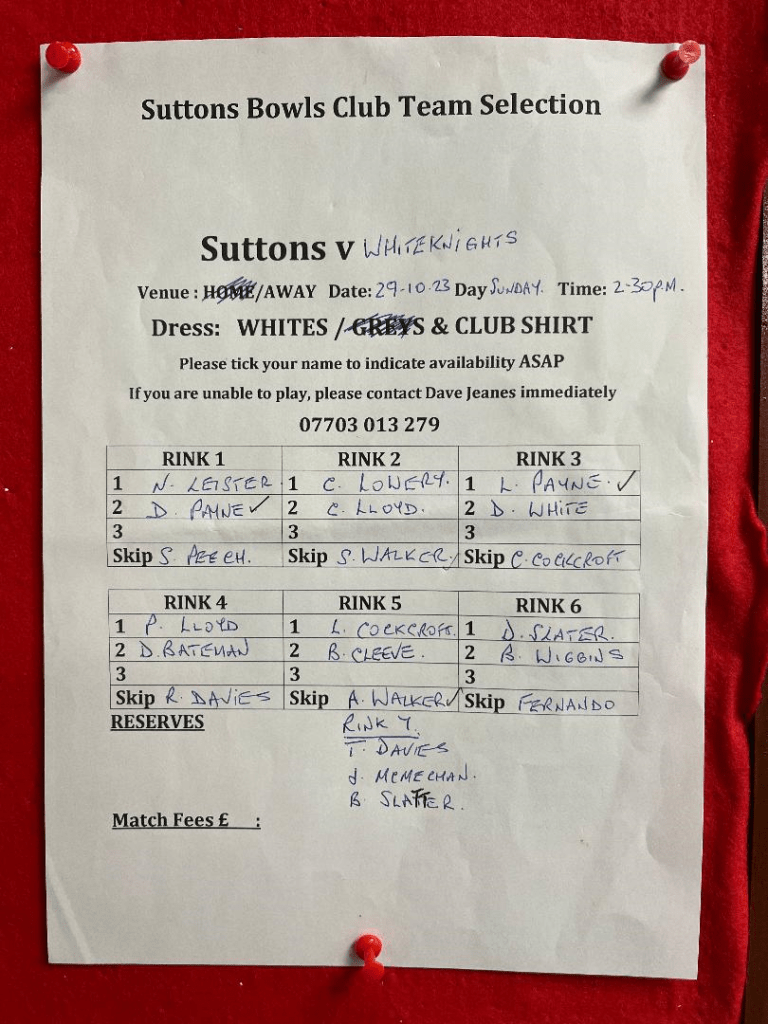 Suttons Bowls Club Team Selection
Suttons v WHITEKNIGHTS
Venue : HOME/AWAY Date: 29-10-23 Day SUNDAY. Time: 2-30P.M.
Dress: WHITES / GREYS & CLUB SHIRT
Please tick your name to indicate availability ASAP
If you are unable to play, please contact Dave Jeanes immediately
07703 013 279
RINK 1 RINK 2 RINK 3
1 N. LEISTER 1 C. LOWERY. 1 L. PAYNE. ✓
2 D. PAYNE ✓ 2 C. LLOYD. 2 D. WHITE
3 3 3
Skip S. PEECH. Skip S. WALKER ✓ Skip C. COCKCROFT
RINK 4 RINK 5 RINK 6
1 P. LLOYD 1 L. COCKCROFT. 1 D. SLATER.
2 D. BATEMAN 2 B. CLEEVE. 2 B. WIGGINS
3 3 3
Skip R. DAVIES Skip A. WALKER ✓ Skip FERNANDO
RESERVES RINK 7.
T. DAVIES
J. MCMECHAN.
B. SLATTER.
Match Fees £ :